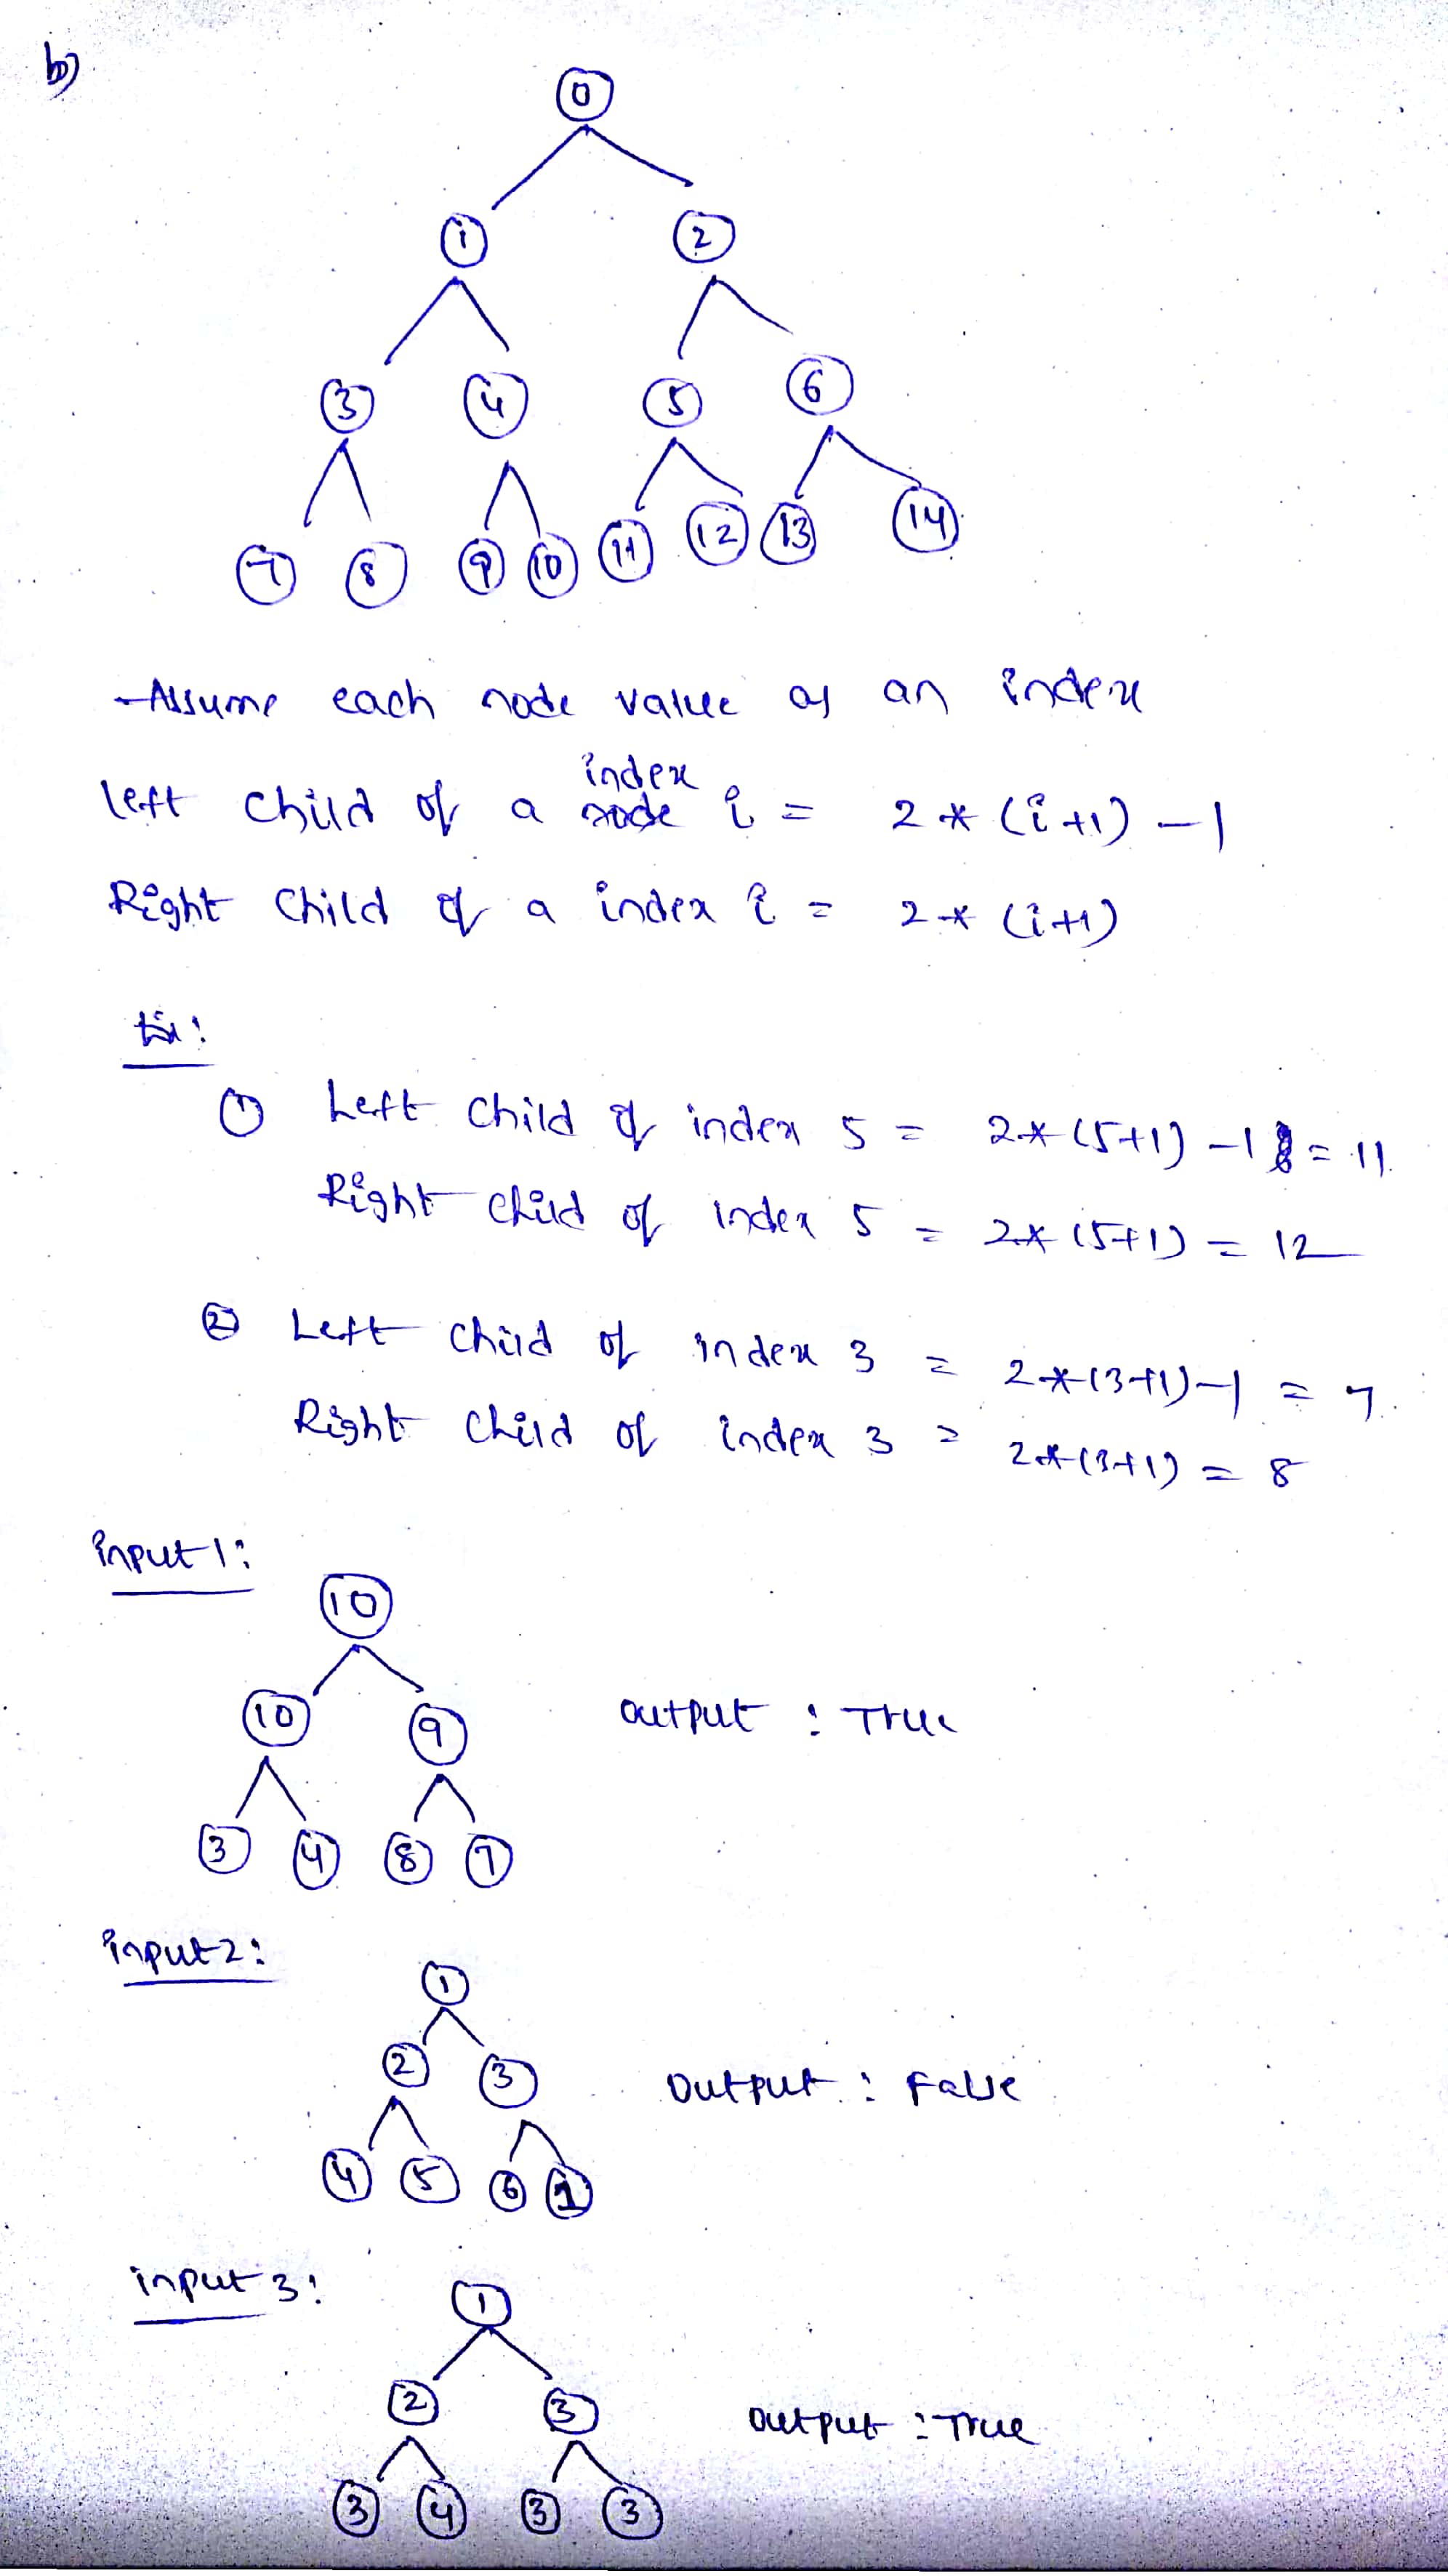 b)
0
1 2
3 4 5 6
7 8 9 10 11 12 13 14
Assume each node value as an index
index
left child of a node i = 2 * (i+1) - 1
Right child of a index i = 2 * (i+1)
Ex:
① Left child of index 5 = 2*(5+1) -1 = 11
Right child of index 5 = 2*(5+1) = 12
② Left child of index 3 = 2*(3+1)-1 = 7
Right child of index 3 = 2*(3+1) = 8
input 1:
10
10 9
output : True
3 4 8 7
input 2:
1
2 3
output : False
4 5 6 1
input 3:
1
2 3
output : True
3 4 3 3